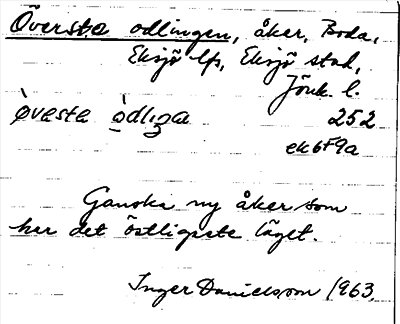 Översta odlingen, åker, Boda,
Eksjö lfs, Eksjö stad,
Jönk. l.
òvesta òdlıŋa 252
ek6F9a
Ganska ny åker som
har det östligaste läget.
Inger Danielsson 1963.